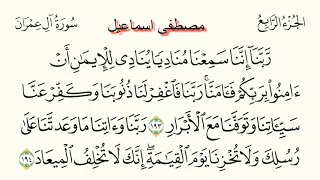 الجزء الرابع
مصطفي اسماعيل
سورة آل عمران
رَّبَّنَآ إِنَّنَا سَمِعْنَا مُنَادِيًا يُنَادِى لِلْإِيمَٰنِ أَنْ
ءَامِنُوا۟ بِرَبِّكُمْ فَـَٔامَنَّا ۚ رَبَّنَا فَٱغْفِرْ لَنَا ذُنُوبَنَا وَكَفِّرْ عَنَّا
سَيِّـَٔاتِنَا وَتَوَفَّنَا مَعَ ٱلْأَبْرَارِ ١٩٣ رَبَّنَا وَءَاتِنَا مَا وَعَدتَّنَا عَلَىٰ
رُسُلِكَ وَلَا تُخْزِنَا يَوْمَ ٱلْقِيَٰمَةِ ۗ إِنَّكَ لَا تُخْلِفُ ٱلْمِيعَادَ ١٩٤